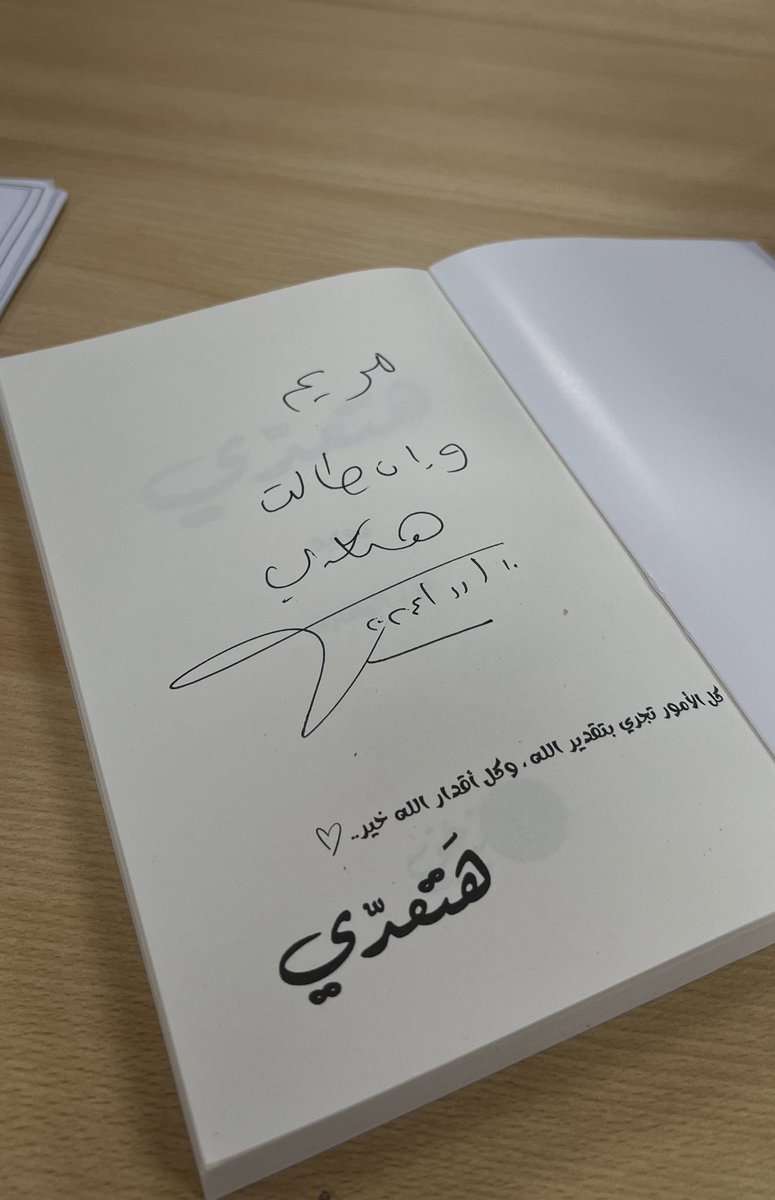 مريم
وإن طالت
هتعدي
١٠/١١/٢٠٢٤
كل الأمور تجري بتقدير الله، وكل أقدار الله خير..♡
هَتعدّي